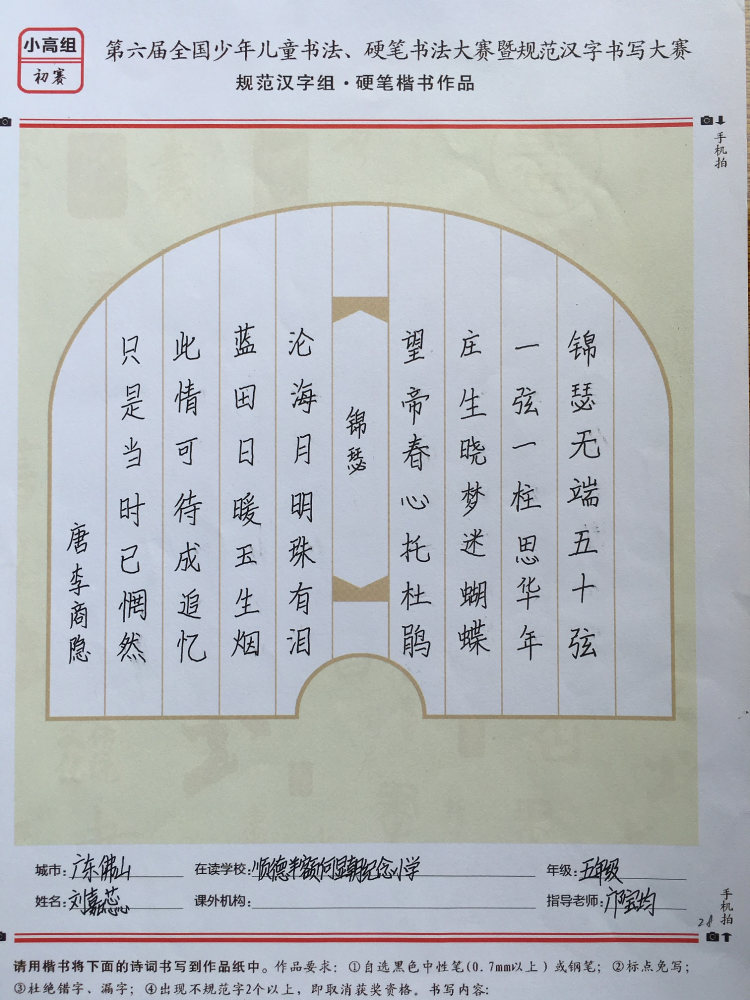 小高组
初赛
第六届全国少年儿童书法、硬笔书法大赛暨规范汉字书写大赛
规范汉字组·硬笔楷书作品
手机拍
锦瑟无端五十弦
一弦一柱思华年
庄生晓梦迷蝴蝶
望帝春心托杜鹃
锦瑟
沧海月明珠有泪
蓝田日暖玉生烟
此情可待成追忆
只是当时已惘然
唐李商隐
城市:广东佛山
在读学校:顺德李顾何显朝纪念小学
年级:五年级
姓名:刘嘉蕊
课外机构:
指导老师:邝宝均
28
手机拍
请用楷书将下面的诗词书写到作品纸中。作品要求:①自选黑色中性笔(0.7mm以上)或钢笔;②标点免写;
③杜绝错字、漏字;④出现不规范字2个以上,即取消获奖资格。书写内容: